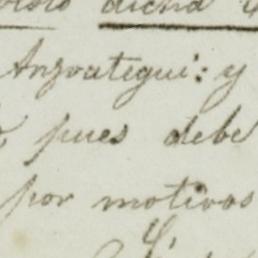 dicha
Anzoategui: y
pues debe
por motivos